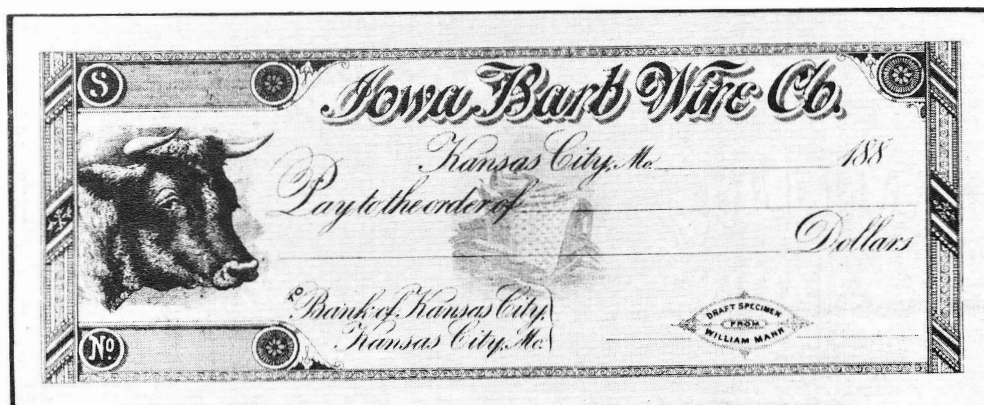 S
Iowa Barb Wire Co.
Kansas City, Mo. 188
Pay to the order of
Dollars
To Bank of Kansas City,
Kansas City, Mo.
No
DRAFT SPECIMEN
FROM
WILLIAM MANN